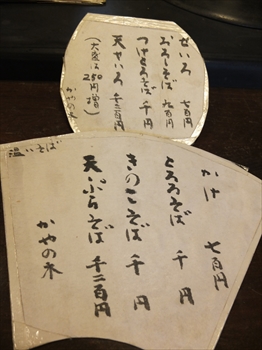 せいろ 七百円
おろしそば 九百円
つけとろそば 千円
天せいろ 千二百円
(大盛は250円増)
かやの木
かけ 七百円
とろろそば 千円
きのこそば 千円
天ぷらそば 千二百円
かやの木
温いそば